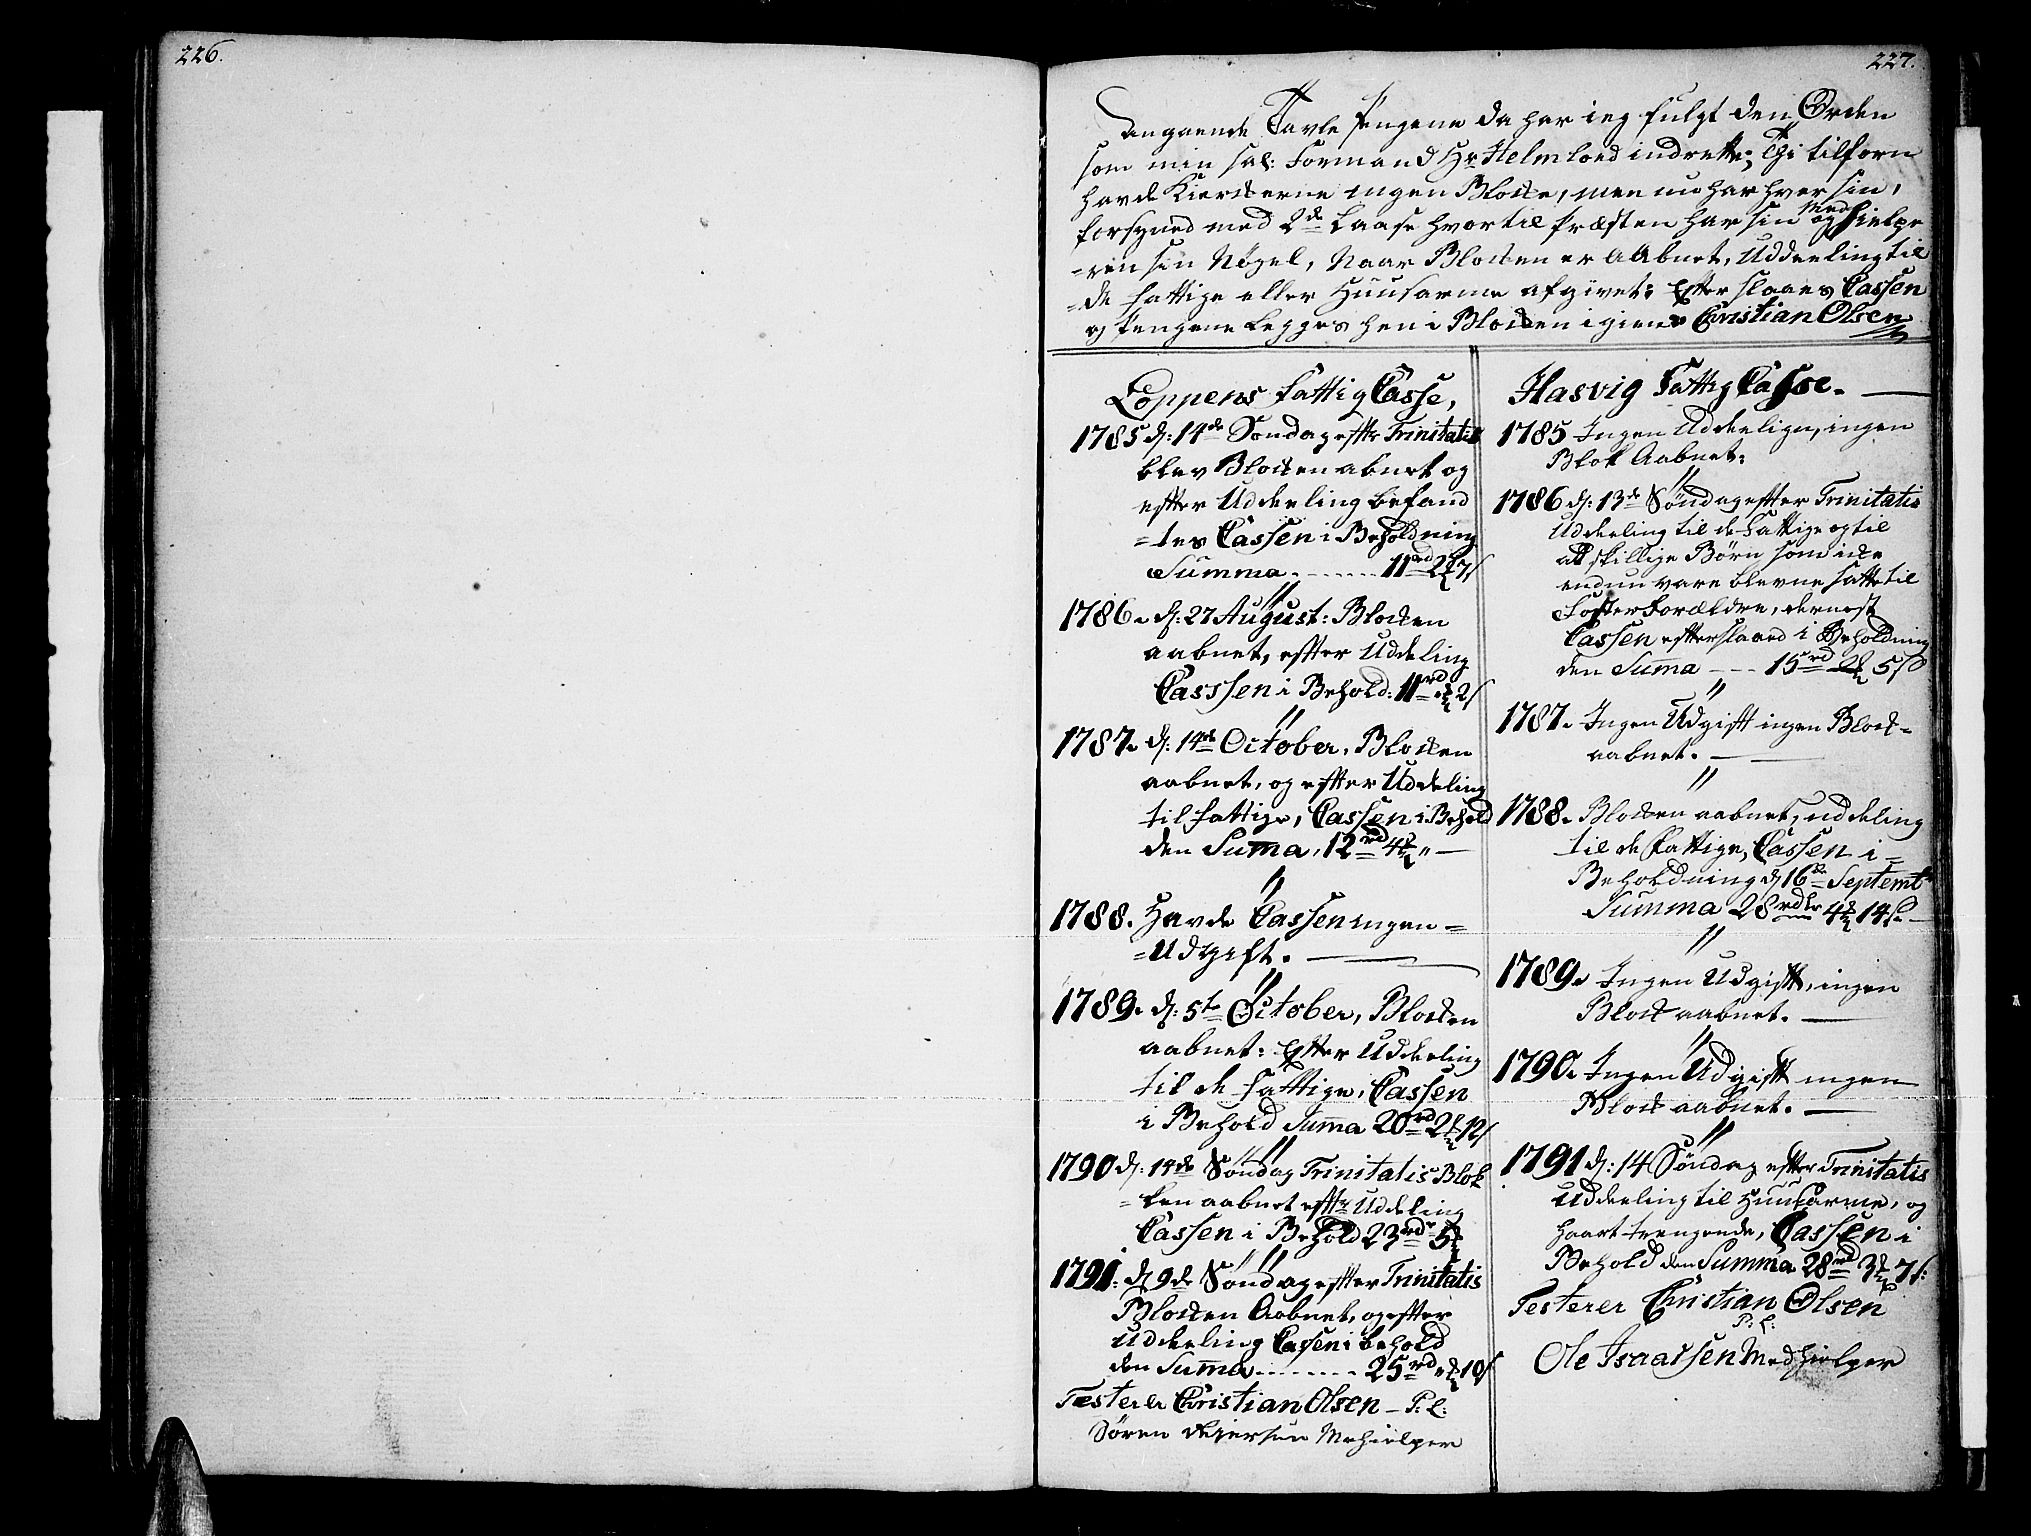 226.
227.
Angaaende Tavle Pengene da har ieg fulgt den Orden
som min sal: Formand Hr Helm loed indrette; Thi tilforn
havde Kierckerne ingen Blocke, men nu har hver sin,
forsyned med 2de Laase hvortil Præsten har sin og Medhielpe
=ren sin Nøgel, Naar Blocken er Aabnet, Uddeeling til
=de fattige eller Huusarme afgivet; Efterslaaes Cassen
og Pengene legges hen i Blocken igien. Christian Olsen
Loppens fattig Casse,
1785 d: 14de Søndag effter Trinitatis
blev Blocken abnet og
effter Uddeeling befand
=tes Cassen i Beholdning
Summa . . . . . . 11rd 2 7s
1786. d: 27 August: Blocken
aabnet, effter Uddeling
Casssen i Behold: 11rd 2s
1787. d: 14de October, Blocken
aabnet, og effter Uddeling
til fattige, Cassen i Behold
den Suma, 12rd 4 "
1788. Havde Cassen ingen =
=Udgift.
1789. d: 5te October, Blocken
aabnet: Effter Uddeeling
til de fattige, Cassen
i Behold Suma 20rd 2 12s
1790 d: 14de Søndag Trinitatis Blok
=ken aabnet effter Uddeling
Cassen i Behold 23rd 5
1791: d 9de Søndag effter Trinitatis
Blocken Aabnet, og effter
Uddeeling Cassen i behold
den Suma . . . . . . . 25rd " 10s
Testerer Christian Olsen – P: L:
Sören Mehielper
Hasvig Fattig Casse.
1785 Ingen Uddeelign, ingen
Blok Aabnet:
1786 d: 13de Søndag effter Trinitatis
Uddeeling til de fattige og til
att skillige Børn som icke
endnu vare blevne satte til
Foster Forældre, dernest
Cassen efterslaaed i Beholdning
den Suma – – – 15rd 2 5s
1787. Ingen Udgifft ingen Block=
aabnet.
1788. Blocken aabnet, uddeling
til de fattige, Cassen i =
Beholdning d 16de Septembr
Summa 28rdlr 4 14s
1789. Ingen Udgifft, ingen
Block aabnet.
1790. Ingen Udgifft ingen
Block aabnet.
1791 d: 14 Søndag effter Trinitatis
Uddeeling til Huusarme, og
haart trengende, Cassen i
Behold den Summa 28rd 3 7s:
Testerer Christian Olsen
P: L:
Ole Isaacsen Medhielper